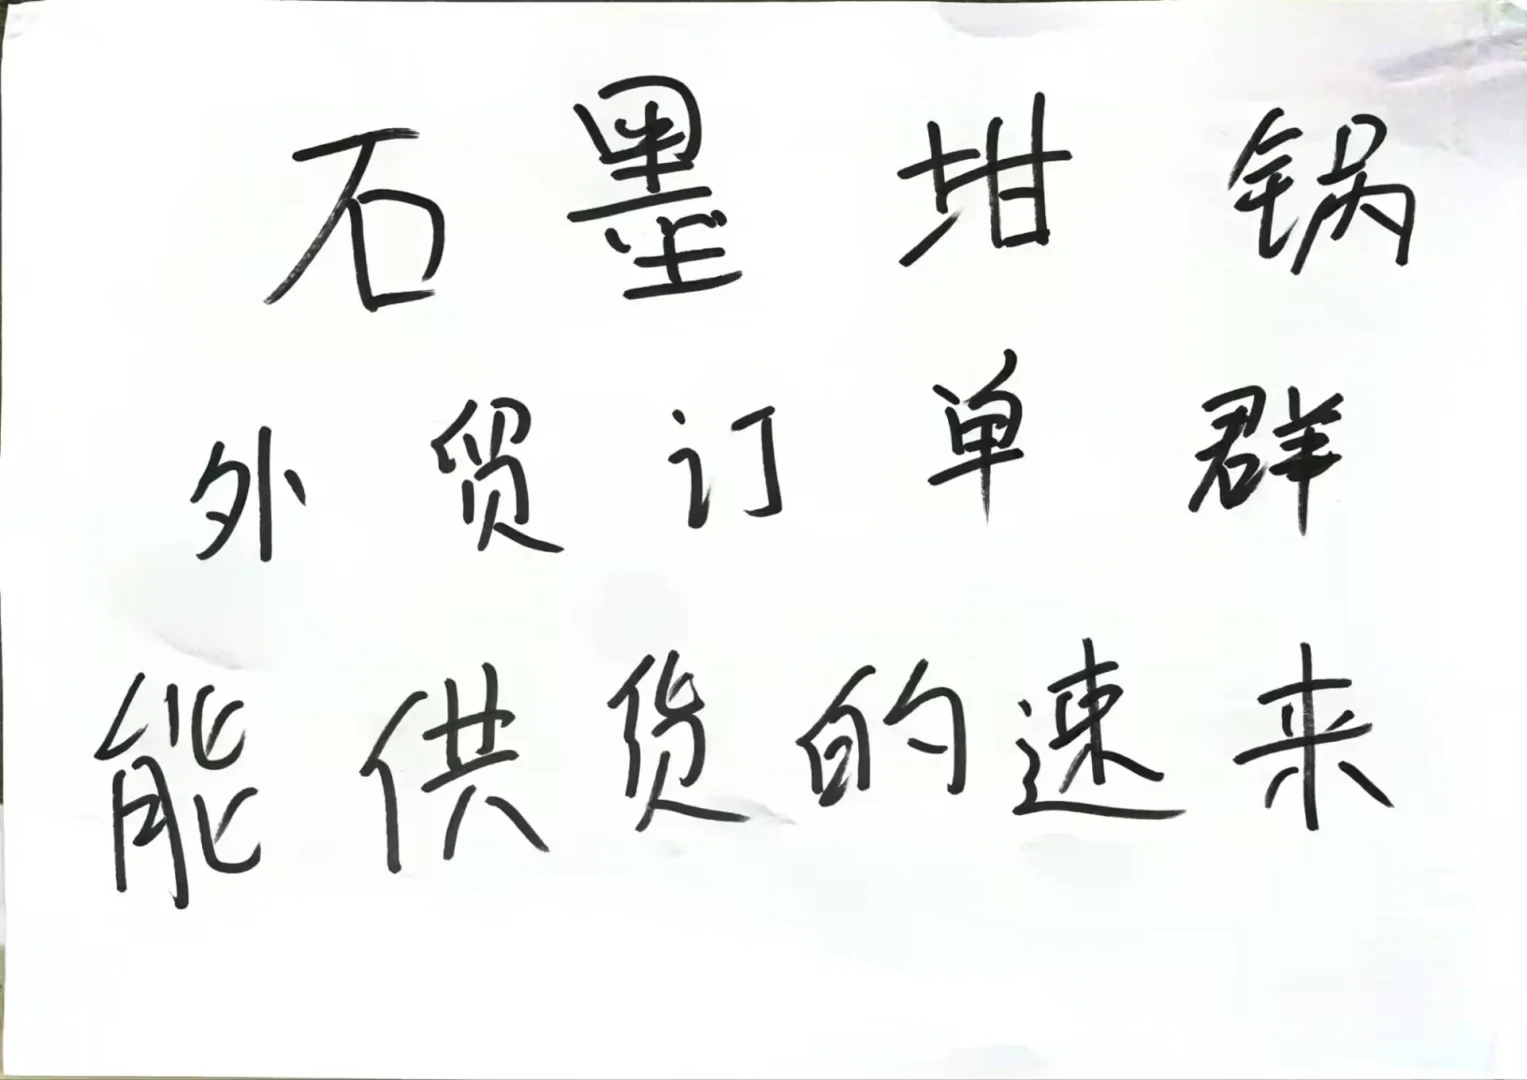 石墨坩锅
外贸订单群
能供货的速来